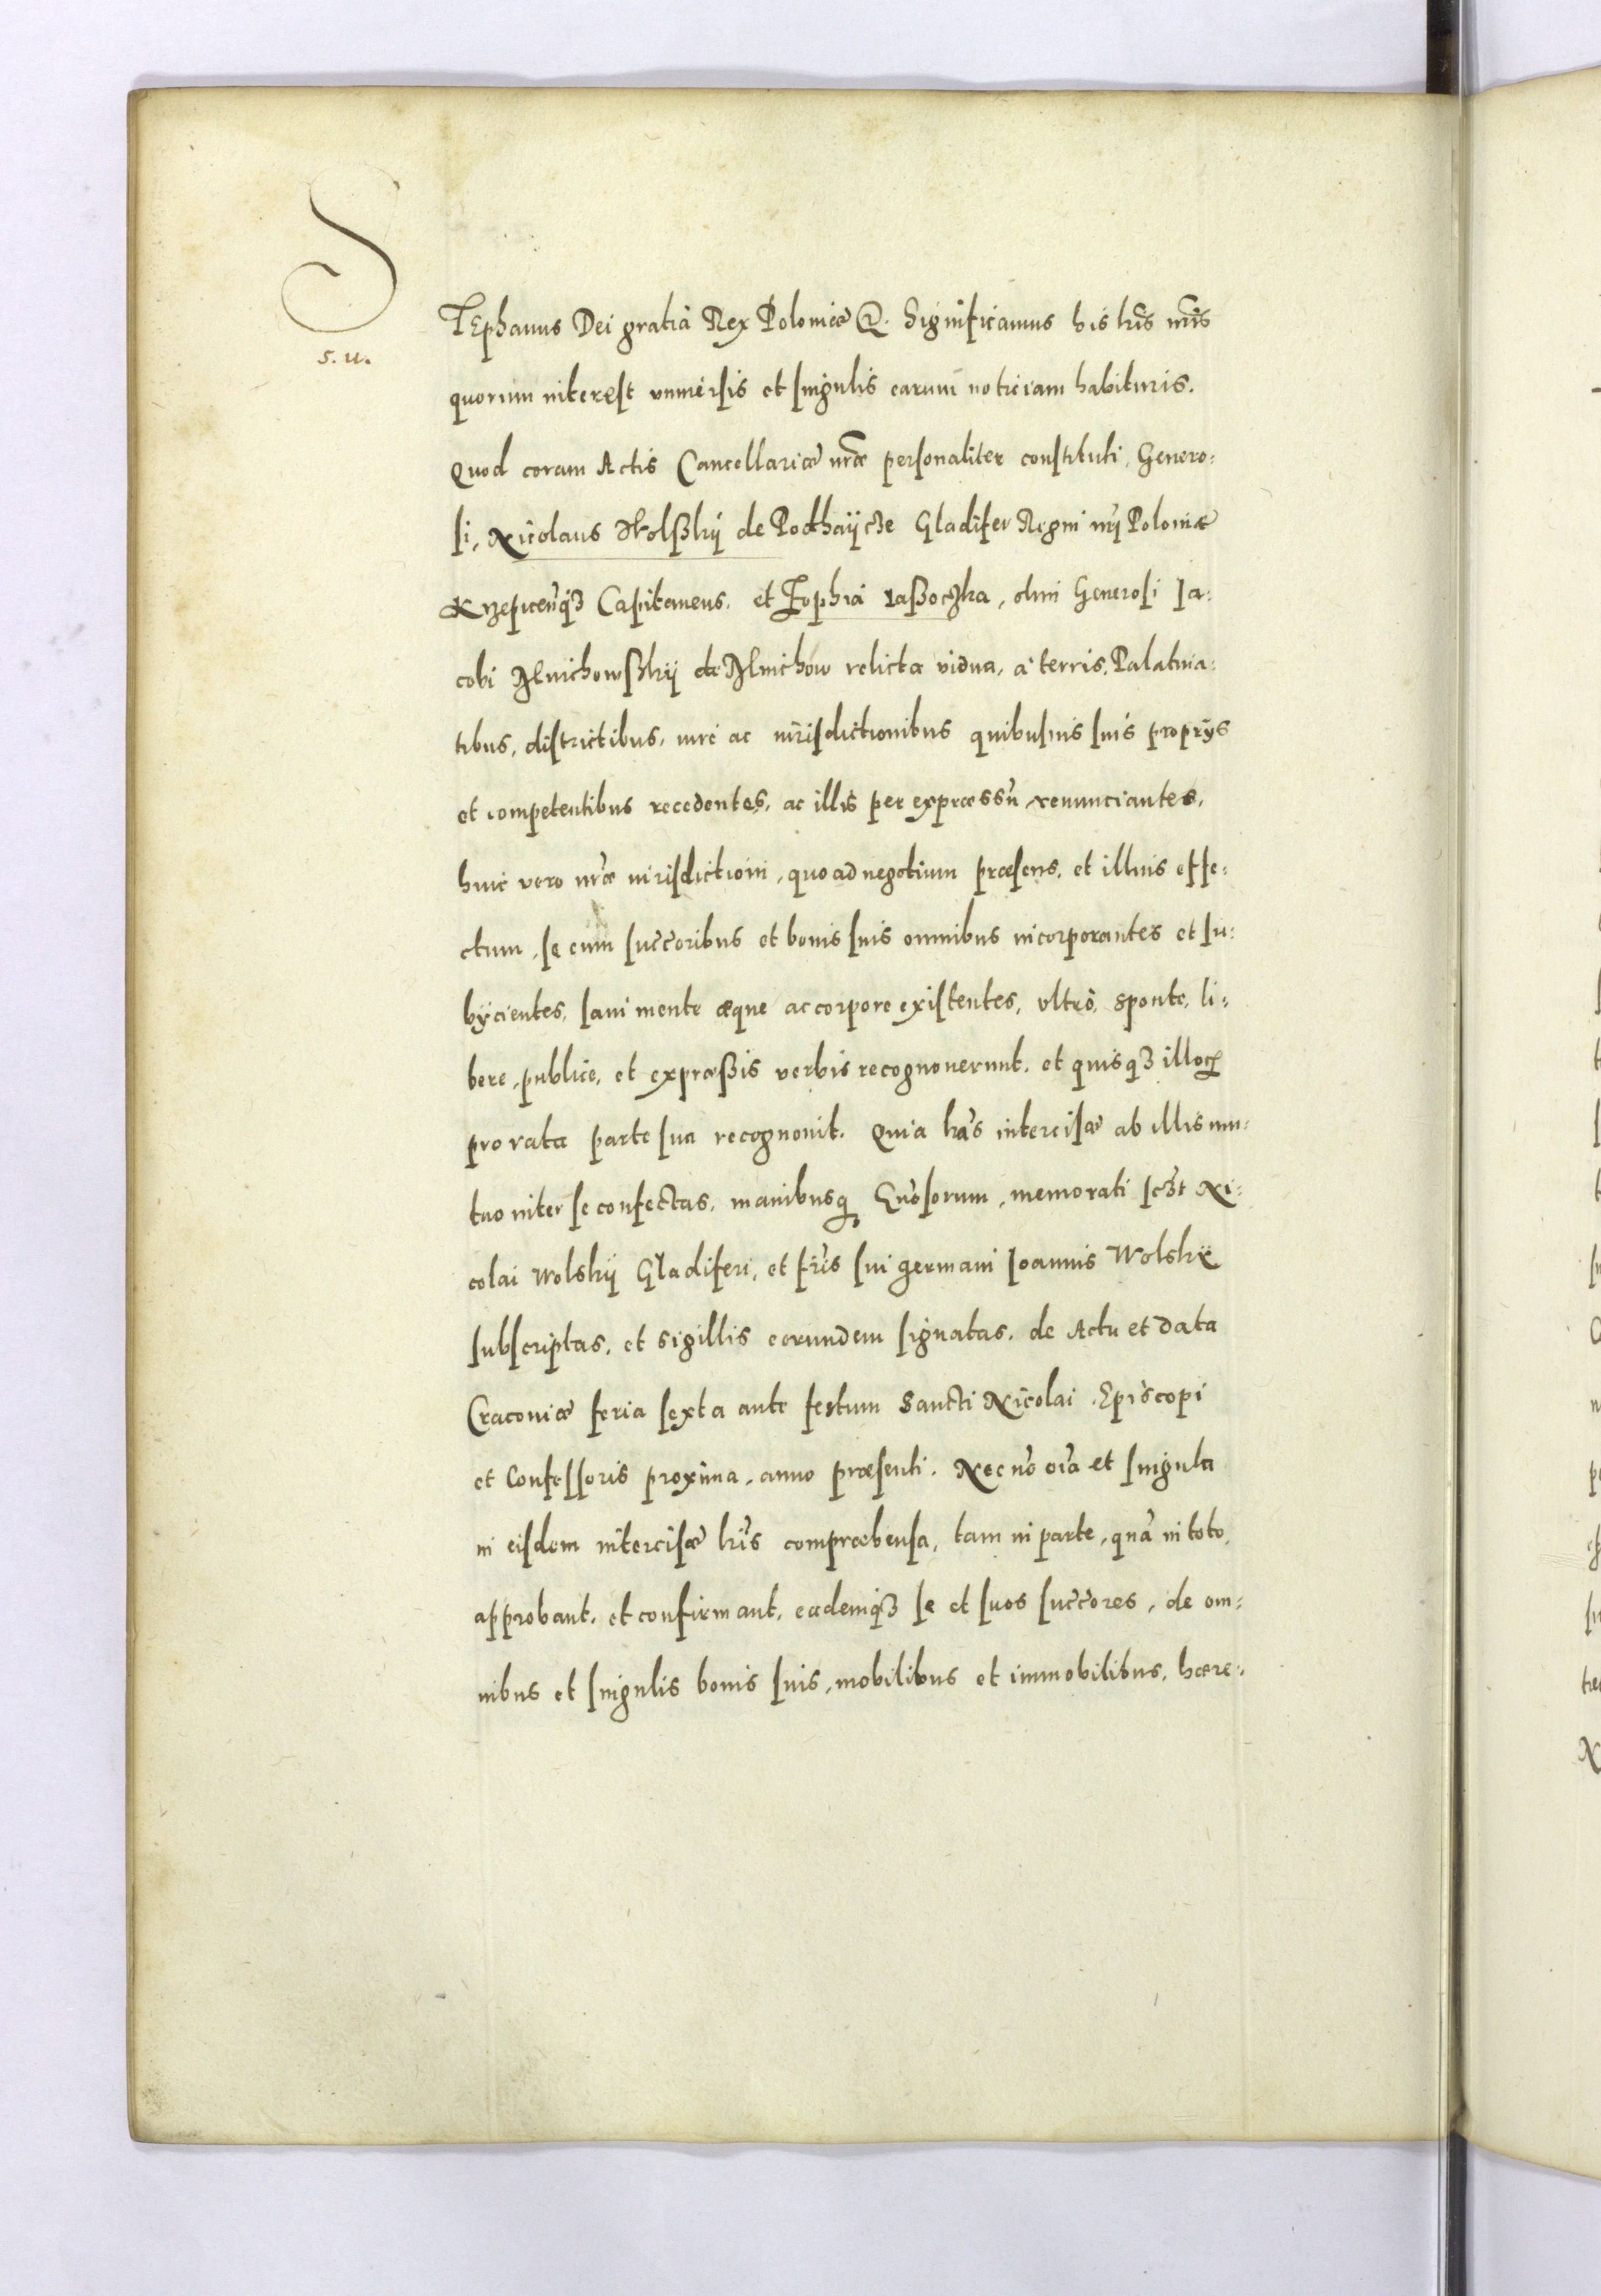 S
TEphanus Dei gratia Rex Poloniæ &. Significamus his lr̃is nr̃is
s. u.
quorum interest vniuersis et singulis earum noticiam habituris.
Quod coram Actis Cancellariæ nr̃æ personaliter constituti, Genero:
si, Nicolaus Wolßkÿ de Podhaÿcze Gladifer Regni nr̃i Poloniæ
Krzepicen̄q3 Capitaneus, et Zophia Laßoczka, olim Generosi Ja:
cobi Zlnichowßkÿ de Zlnichow relicta vidua, a terris, Palatina:
tibus, districtibus, iure ac iurisdictionibus quibusuis suis proprÿs
et competentibus recedentes, ac illis per expræssū renunciantes,
huic vero nr̃æ iurisdictioni, quo ad negotium præsens, et illius effe:
ctum, se cum succ̃oribus et bonis suis omnibus incorporantes et su:
bÿcientes, sani mente æque ac corpore existentes, vltrò, sponte, li:
bere, publice, et expræßis verbis recognouerunt, et quisq3 illoꝝ
pro rata parte sua recognouit. Quia lr̃as intercisæ ab illis mu:
tuo inter se confectas, manibusq3 Gn̄osorum, memorati sc3t Ni:
colai Wolskÿ Gladiferi, et fr̃is sui germani Joannis Wolskÿ
subscriptas, et sigillis eorundem signatas, de Actu et data
Cracouiæ feria sexta ante festum Sancti Nicolai Episcopi
et Confessoris proxima, anno præsenti. Nec nō oīa et singula
in eisdem intercisæ lr̃is compræhensa, tam in parte, quā in toto,
approbant, et confirmant, eademq3 se et suos succ̃ores, de om:
nibus et singulis bonis suis, mobilibus et immobilibus, hære: